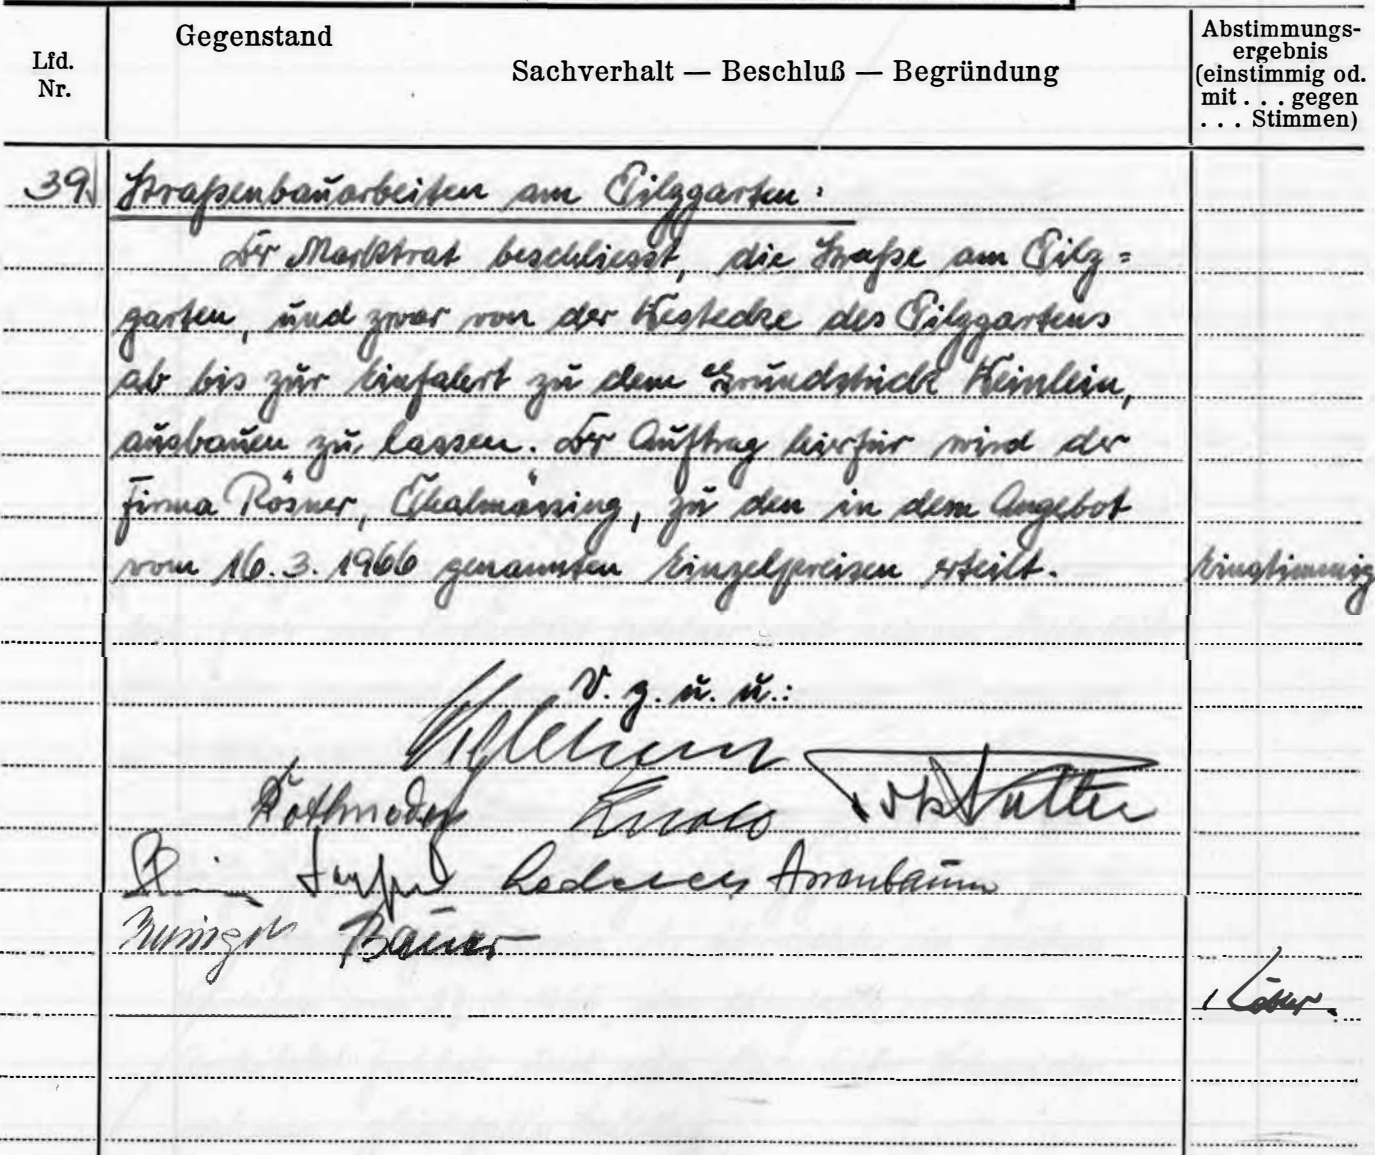 Lfd.
Nr.
Gegenstand
Sachverhalt — Beschluß — Begründung
Abstimmungs-
ergebnis
(einstimmig od.
mit . . . gegen
. . . Stimmen)
39. Straßenbauarbeiten am Pilzgarten:
Der Marktrat beschliesst, die Straße am Pilz=
garten, und zwar von der Westecke des Pilzgartens
ab bis zur Einfahrt zu dem Grundstück Weinlein,
ausbauen zu lassen. Der Auftrag hierfür wird der
Firma Rösner, Thalmässing, zu den in dem Angebot
vom 16. 3. 1966 genannten Einzelpreisen erteilt.
Einstimmig
V. g. u. u.:
Bauer